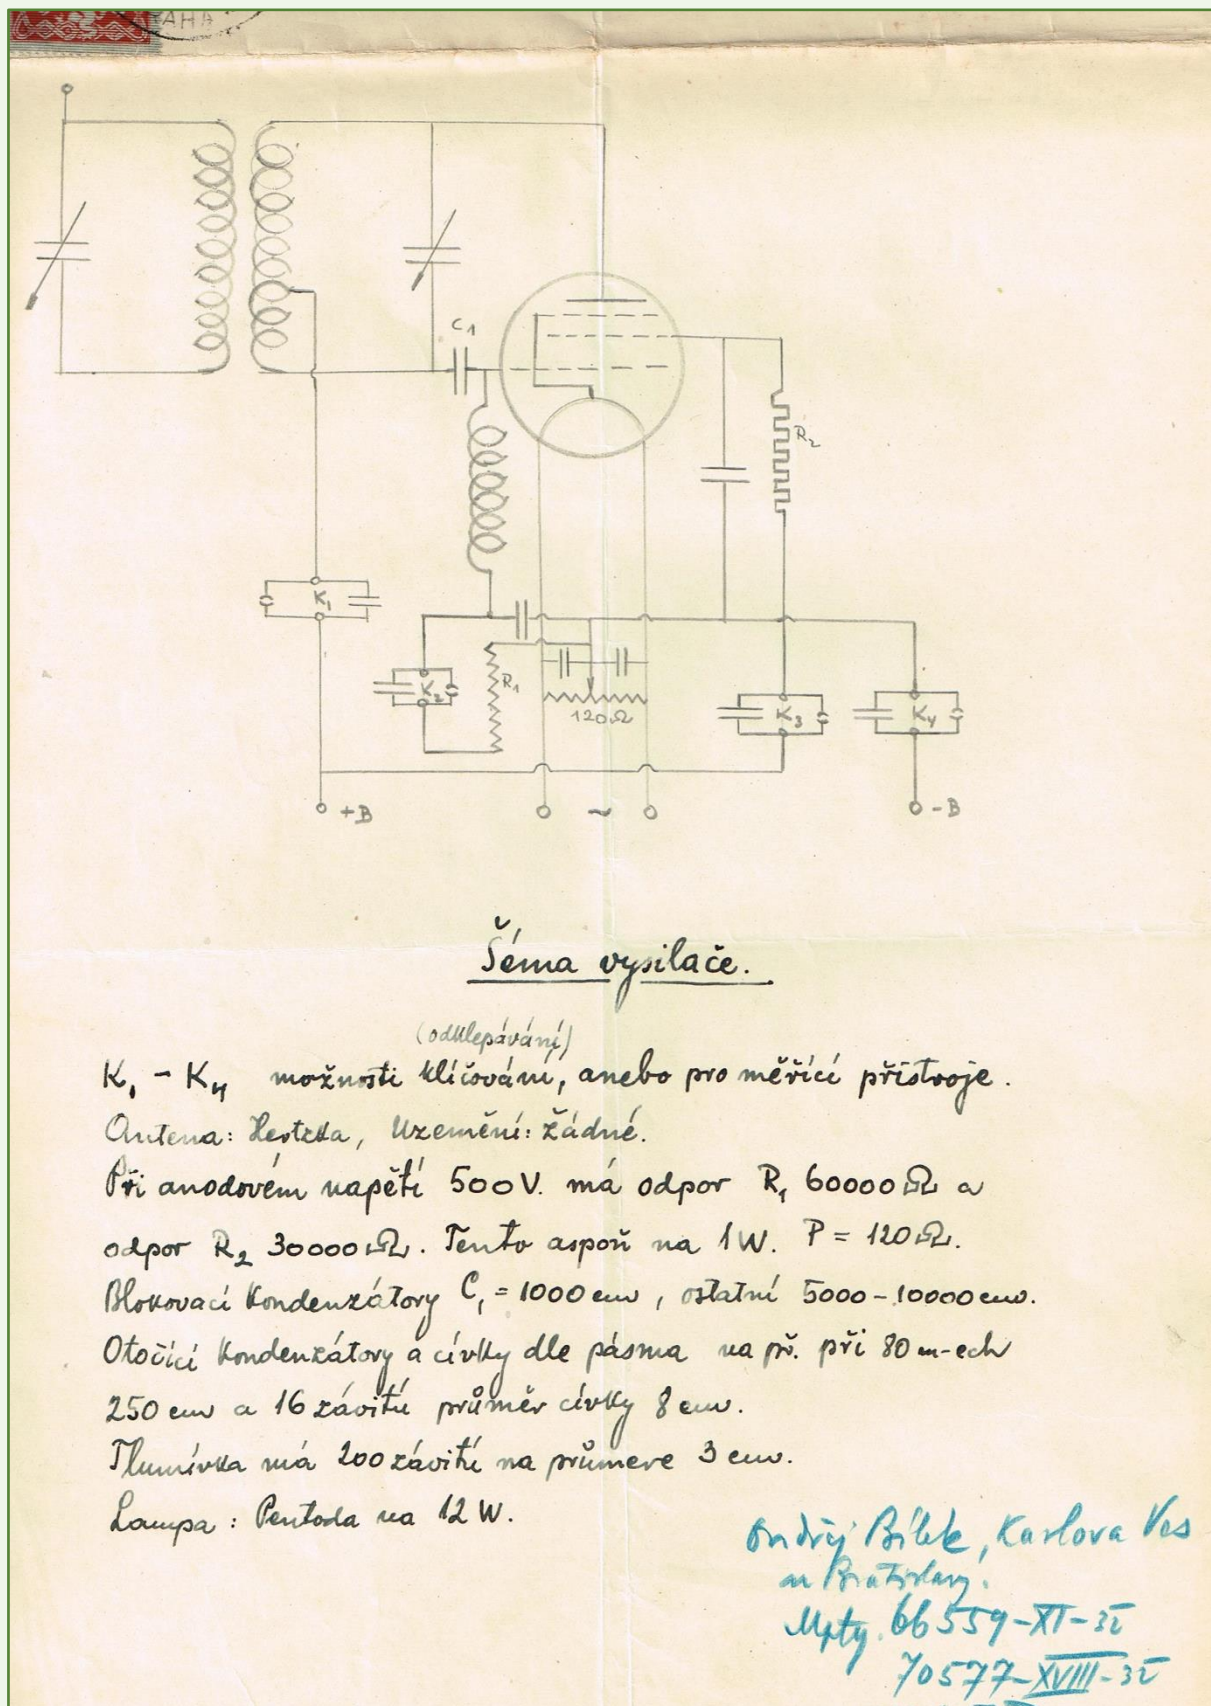 PRAHA
C1
R2
K1
K2
R1
120Ω
K3
K4
+B
~
-B
Šéma vysilače.
(odklepávání)
K1 – K4 možnosti klíčování, anebo pro měřící přístroje.
Antena: Hertzka, Uzemění: žádné.
Při anodovém napětí 500V. má odpor R1 60000Ω a
odpor R2 30000Ω. Tento aspoň na 1W. P = 120Ω.
Blokovací kondenzátory C1 = 1000 cm, ostatní 5000-10000 cm.
Otočící kondenzátory a cívky dle pásma na př. při 80 m-ech
250 cm a 16 závitů průměr cívky 8 cm.
Tlumivka má 200 závitů na průmere 3 cm.
Lampa: Pentoda na 12 W.
Ondřej Bílek, Karlova Ves
u Bratislavy.
Mpty. 66559-XI-32
70577-XVIII-32